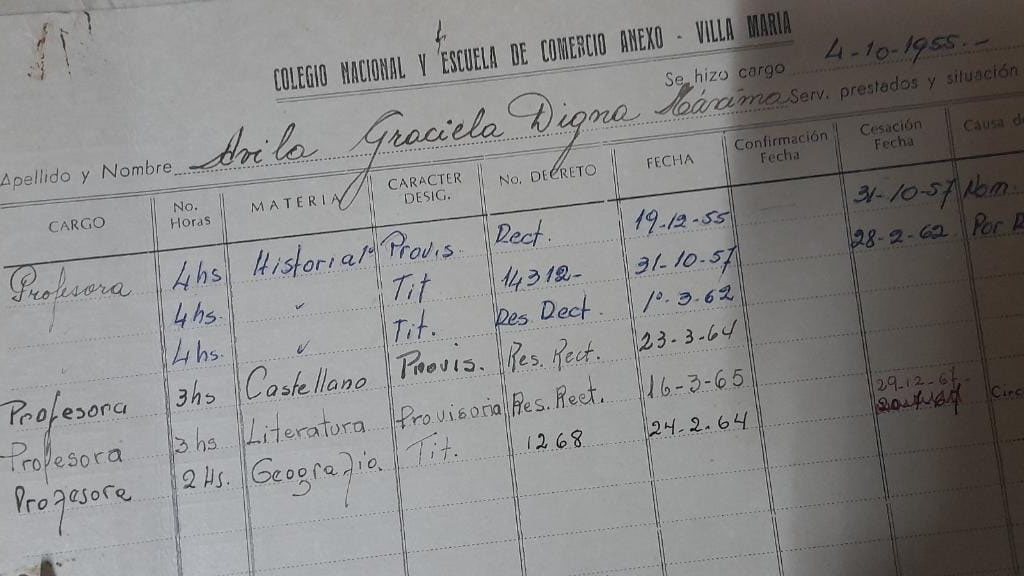 COLEGIO NACIONAL Y ESCUELA DE COMERCIO ANEXO - VILLA MARIA
Se hizo cargo 4-10-1955.-
Apellido y Nombre Avila Graciela Digna Máxima Serv. prestados y situación
CARGO No. Horas MATERIA CARACTER DESIG. No. DECRETO FECHA Confirmación Fecha Cesación Fecha Causa de
Profesora 4hs Historia 1º Provis. Rect. 19-12-55 31-10-57 Nom.
4hs. " Tit 14312- 31-10-57 28-2-62 Por
4hs. " Tit. Res Rect. 1º-3-62
Profesora 3hs Castellano Provis. Res. Rect. 23-3-64
Profesora 3hs. Literatura Provisoria Res. Rect. 16-3-65 29-12-67-
Profesora 2Hs. Geografia. Tit. 1268 24-2-64